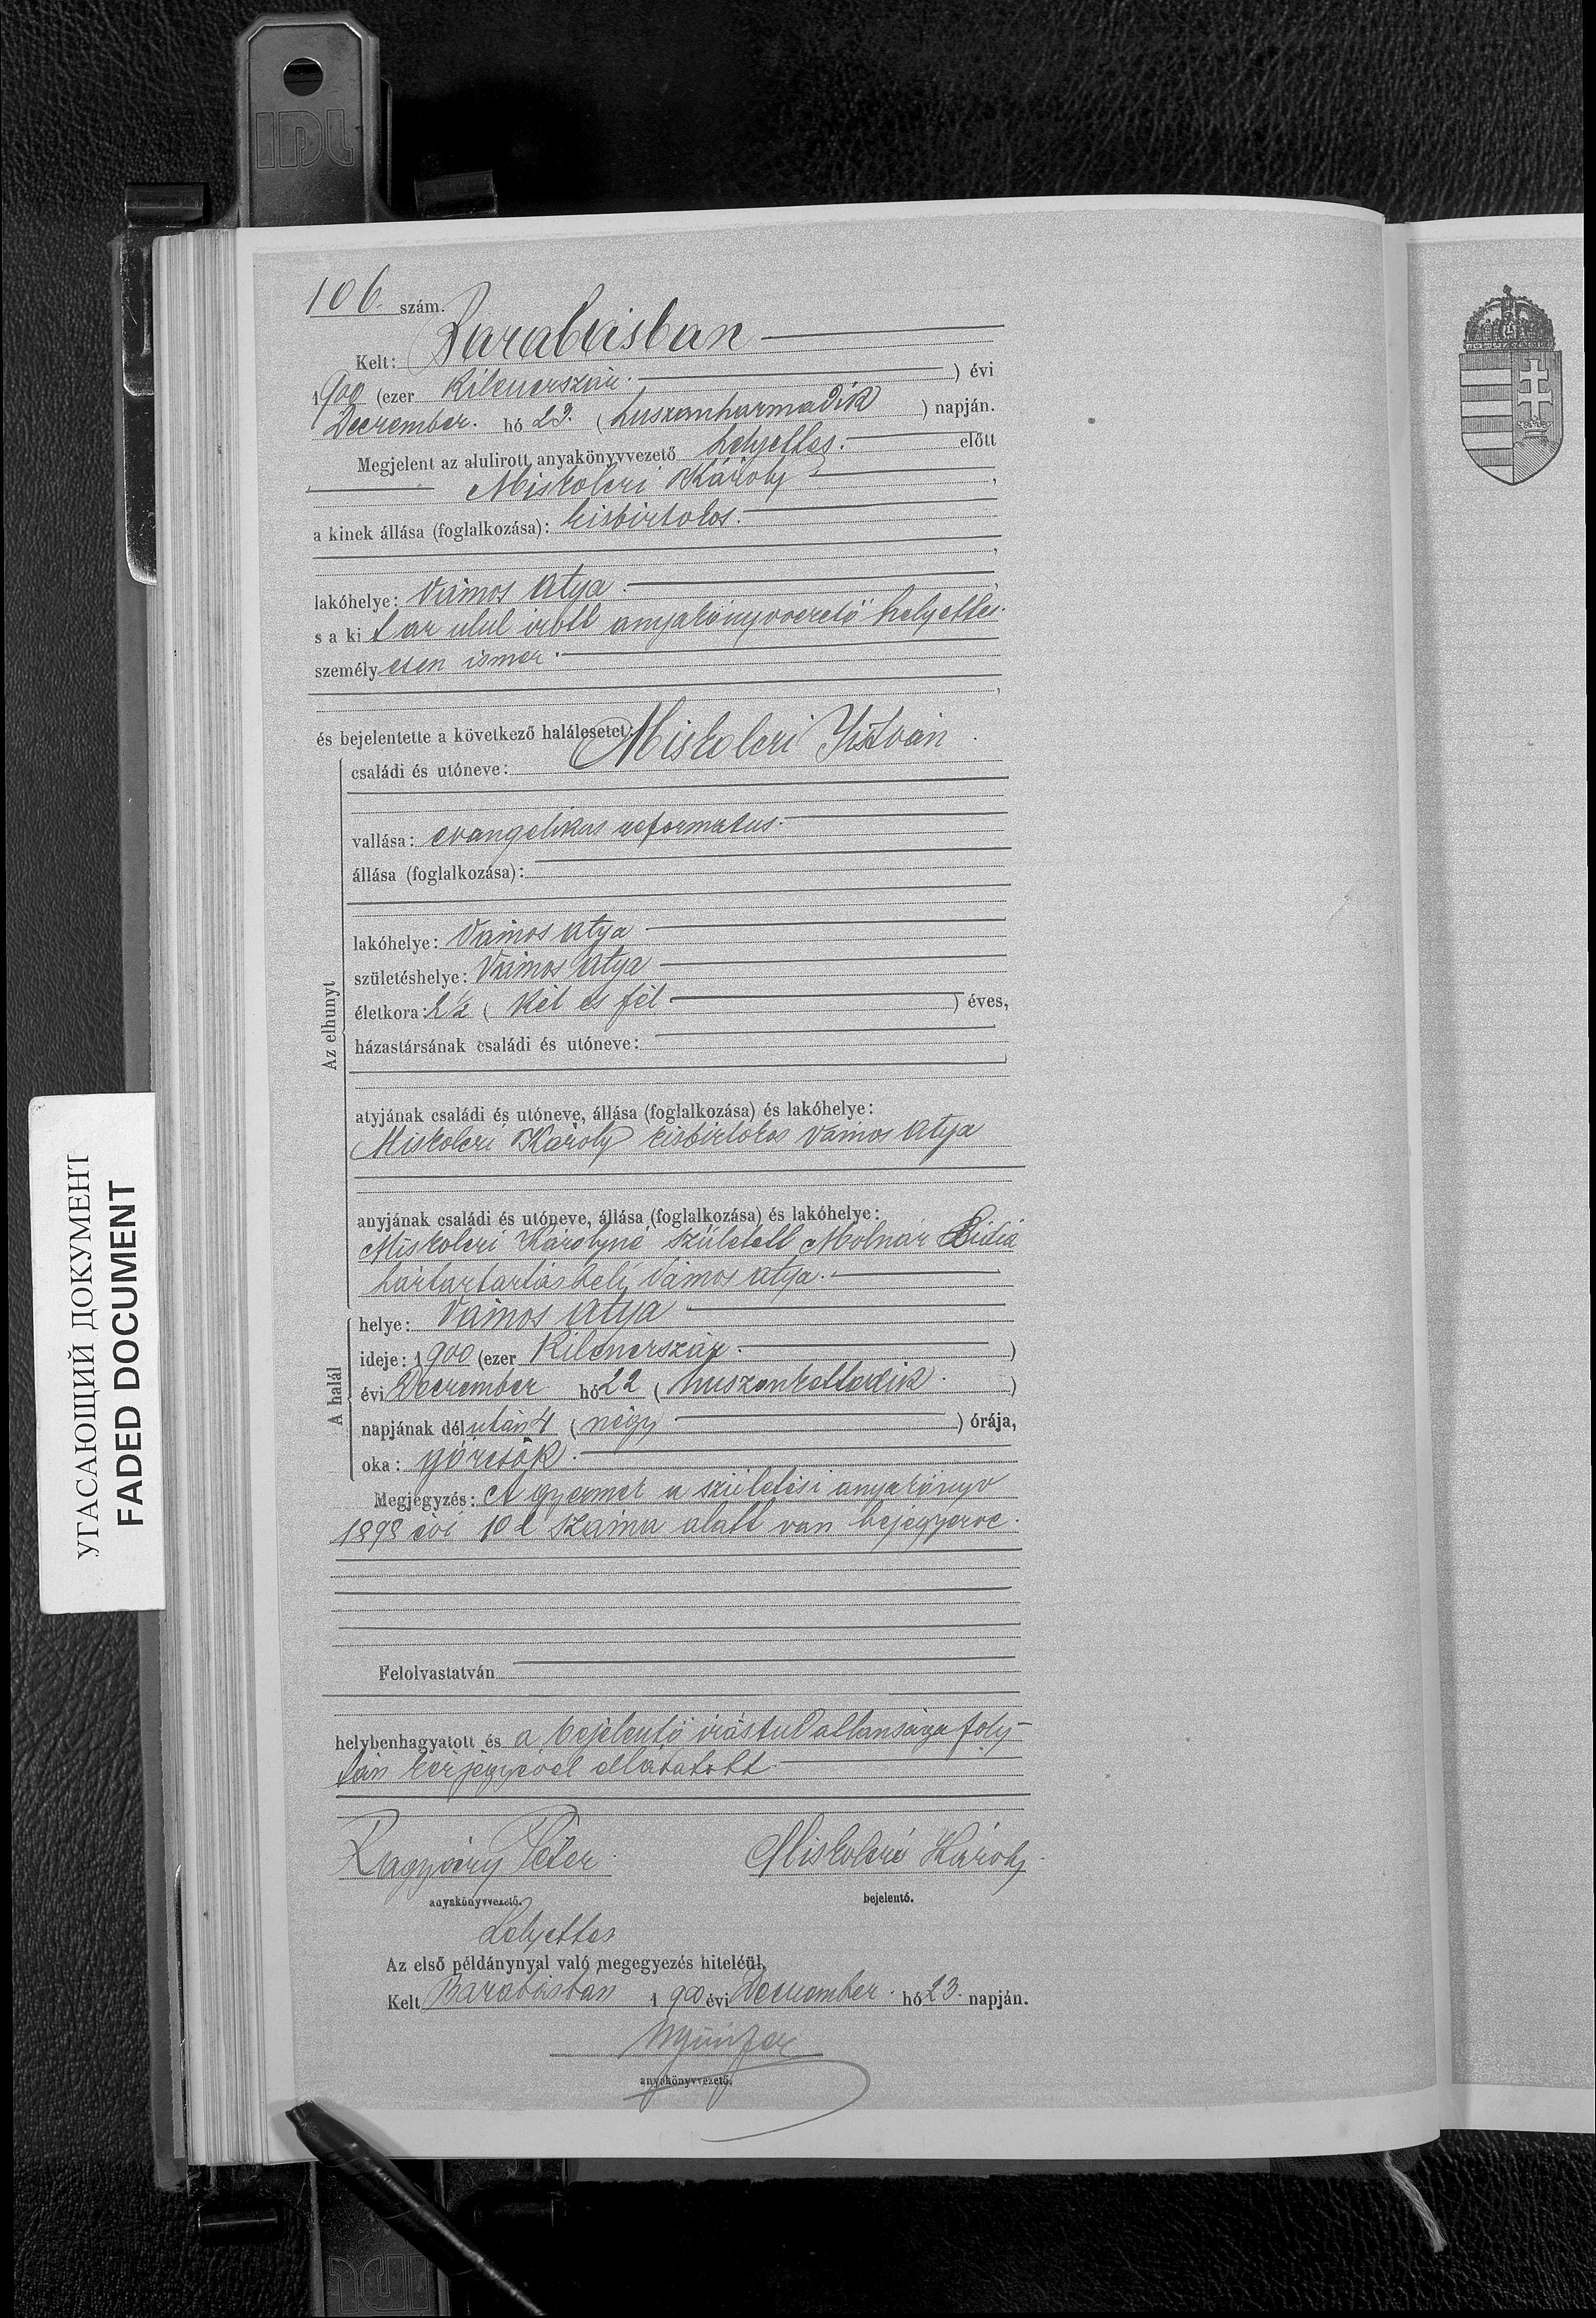 IDL
106. szám.
Kelt: Barabásban
1900 (ezer kilenczszáz. ) évi
Deczember. hó 23. (huszonharmadik ) napján.
Megjelent az alulirott anyakönyvvezető helyettes. előtt
Miskolczi Károly ,
a kinek állása (foglalkozása): kisbirtokos.
,
lakóhelye: Vámos Atya ,
s a ki t az alul irott anyakönyvvezető helyettes
személy esen ismer.
,
és bejelentette a következő halálesetet:
családi és utóneve: Miskolczi István
vallása: evangelikus reformatus.
állása (foglalkozása):
lakóhelye: Vámos Atya
születéshelye: Vámos Atya
Az elhunyt
életkora: 2½ ( Két és fél ) éves,
házastársának családi és utóneve:
atyjának családi és utóneve, állása (foglalkozása) és lakóhelye:
Miskolczi Károly kisbirtokos Vámos Atya
anyjának családi és utóneve, állása (foglalkozása) és lakóhelye:
Miskolczi Károlyné született Molnár Lidia
háztartásbeli Vámos Atya.
helye: Vámos Atya
ideje: 1900 (ezer Kilenczszáz. )
A halál
évi Deczember hó 22 ( huszonkettedik. )
napjának dél után 4 ( négy ) órája,
oka: görcsök.
Megjegyzés: A gyermek a születési anyakönyv
1898 évi száma alatt van bejegyezve.
Felolvastatván
helybenhagyatott és a bejelentő irástudatlansága foly-
tán kézjegyével elláttatott
Péter Miskolczi Károly
anyakönyvvezető. bejelentő.
helyettes
Az első példánynyal való megegyezés hiteléül,
Kelt Barabásban 1900 évi Deczember. hó 23. napján.
anyakönyvvezető.
УГАСАЮЩИЙ ДОКУМЕНТ
FADED DOCUMENT
IDL